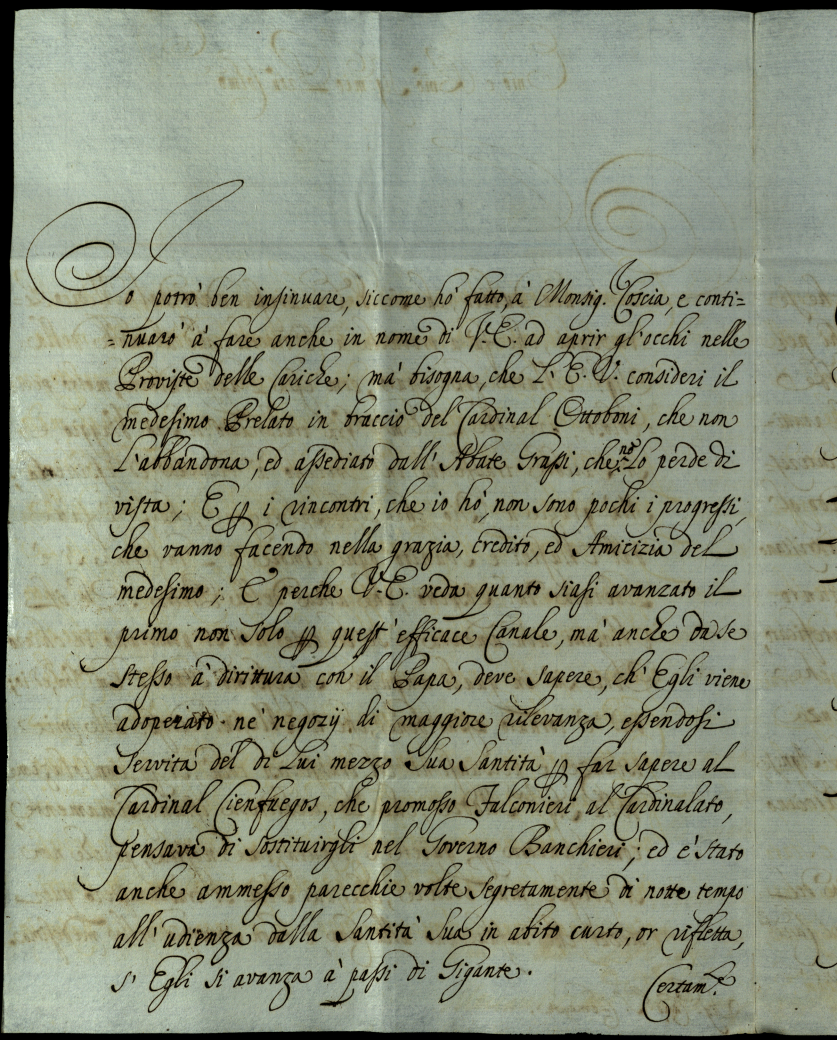 Io potrò ben insinuare, siccome hò fatto, à Monsig.r Coscia, e conti=
=nuarò à fare anche in nome di V. E. ad aprir gl'occhi nelle
Proviste delle Cariche; mà bisogna, che l'E. V. consideri il
medesimo Prelato in braccio del Cardinal Ottoboni, che non
l'abbandona, ed assediato dall'Abate Grassi, che no lo perde di
vista; E p i rincontri, che io hò, non sono pochi i progressi,
che vanno facendo nella grazia, credito, ed Amicizia del
medesimo; E perche V. E. veda quanto siasi avanzato il
primo non solo p quest'efficace Canale, mà anche da se
stesso à dirittura con il Papa, deve sapere, ch'Egli viene
adoperato ne' negozij di maggiore rilevanza, essendosi
servita del di Lui mezzo Sua Santità p far sapere al
Cardinal Cienfuegos, che promosso Falconieri al Cardinalato,
pensava di sostituirgli nel Governo Banchieri; ed è stato
anche ammesso parecchie volte segretamente di notte tempo
all'udienza dalla Santità Sua in abito curto, or rifletta,
s'Egli si avanza à passi di Gigante.
Certam.e